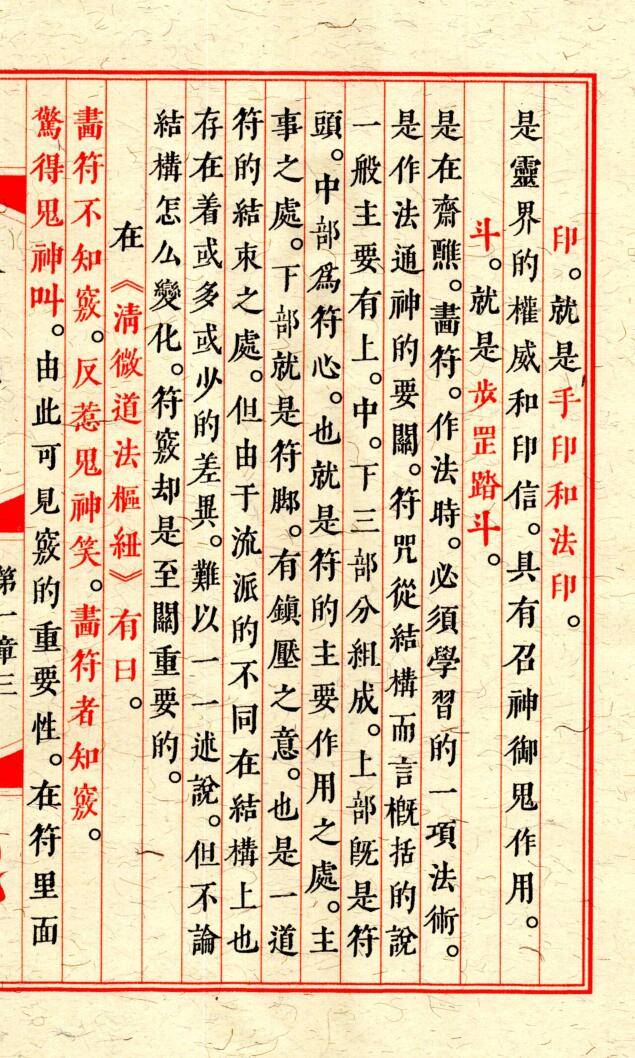 印。就是手印和法印。
是靈界的權威和印信。具有召神御鬼作用。
斗。就是步罡踏斗。
是在齋醮。畵符。作法時。必須學習的一項法術。
是作法通神的要關。符咒從結構而言概括的說
一般主要有上。中。下三部分組成。上部旣是符
頭。中部爲符心。也就是符的主要作用之處。主
事之處。下部就是符脚。有鎭壓之意。也是一道
符的結束之處。但由于流派的不同在結構上也
存在着或多或少的差異。難以一一述說。但不論
結構怎么變化。符竅却是至關重要的。
在《清微道法樞紐》有曰。
畵符不知竅。反惹鬼神笑。畵符者知竅。
驚得鬼神叫。由此可見竅的重要性。在符里面
第一章三